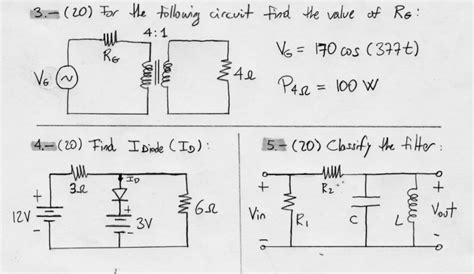 3.- (20) For the following circuit find the value of RG:
4:1
RG
VG
4Ω
VG = 170 cos (377t)
P4Ω = 100 W
4.- (20) Find IDiode (ID):
3Ω
ID
12V
3V
6Ω
+
-
+
-
5.- (20) Classify the filter:
+
Vin
-
R1
R2
C
L
+
Vout
-